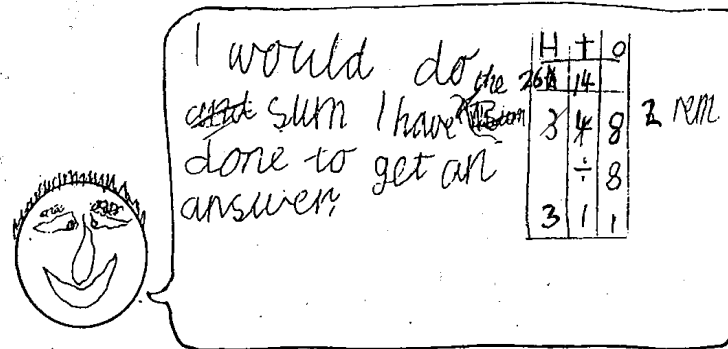 I would do the
sum I have
done to get an
answer.
H T O
26 14
3 4 8 2 rem
÷ 8
3 1 1